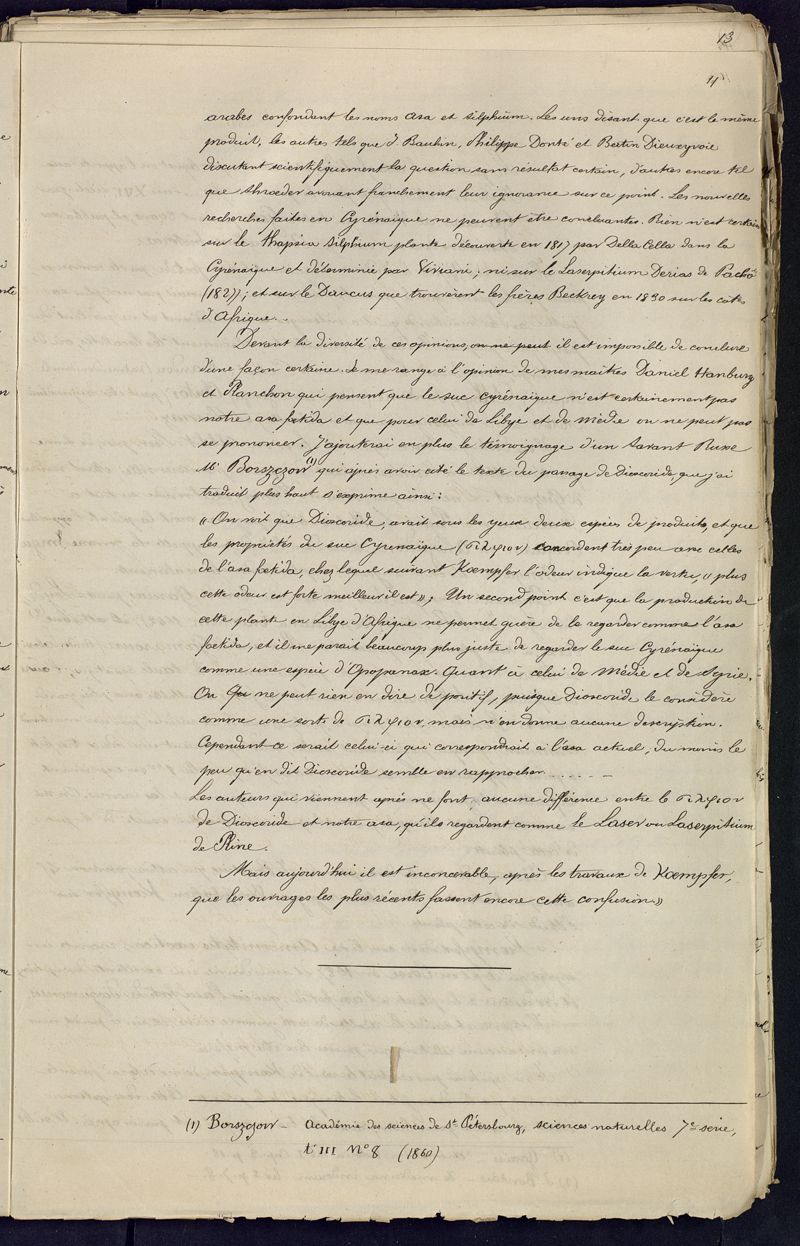 13
11
arabes confondant les noms asa et silphium. Les uns disant que c'est le même
produit, les autres tels que J Bauhin, Philippe Donté et Bertin Dieuxyvoie
discutant scientifiquement la question sans résultat certain, d'autres encore tel
que Shrœder avouant franchement leur ignorance sur ce point. Les nouvelles
recherches faites en Cyrénaïque ne peuvent être concluantes. Rien n'est certain
sur le thapsia silphium plante découverte en 1817 par Della Cella dans la
Cyrénaïque et déterminée par Viviani; ni sur le Laserpitium Derias de Pacho
(1827); et sur le Daucus que trouvèrent les frères Beckrey en 1830 sur les côtes
d'Afrique.
Devant la diversité de ces opinions, on ne peut il est impossible de conclure
d'une façon certaine. Je me range à l'opinion de mes maîtres Daniel Hanbury
et Planchon qui pensent que le suc cyrénaïque n'est certainement pas
notre asa fœtida et que pour celui de Libye et de Médie on ne peut pas
se prononcer. J'ajouterai en plus le témoignage d'un savant Russe
Mr Borszczow (1) qui après avoir cité le texte du passage de Dioscoride, que j'ai
traduit plus haut s'exprime ainsi:
« On voit que Dioscoride, avait sous les yeux deux espèces de produits, et que
les propriétés du suc Cyrénaïque (σιλφιον) concordent très peu avec celles
de l'asa fœtida, chez lequel suivant Kœmpfer l'odeur indique la vertu, « plus
cette odeur est forte meilleur il est », Un second point c'est que la production de
cette plante en Libye d'Afrique ne permet guère de la regarder comme l'asa
fœtida, et il me parait beaucoup plus juste de regarder le suc Cyrénaïque
comme une espèce d'Opopanax. Quant à celui de Médie et de Syrie.
On ne peut rien en dire de positif, puisque Dioscoride le considère
comme une sorte de σιλφιον mais n'en donne aucune description.
Cependant ce serait celui-ci qui correspondrait à l'asa actuel, du moins le
peu qu'en dit Dioscoride semble en rapprocher.......
Les auteurs qui viennent après ne font aucune différence entre le σιλφιον
de Dioscoride et notre asa, qu'ils regardent comme le Laser ou Laserpitium
de Pline.
Mais aujourd'hui il est inconcevable, après les travaux de Kœmpfer,
que les ouvrages les plus récents fassent encore cette confusion »
(1) Borszczow - Académie des sciences de St Pétersbourg, sciences naturelles 7e série,
t III No 8 (1860)